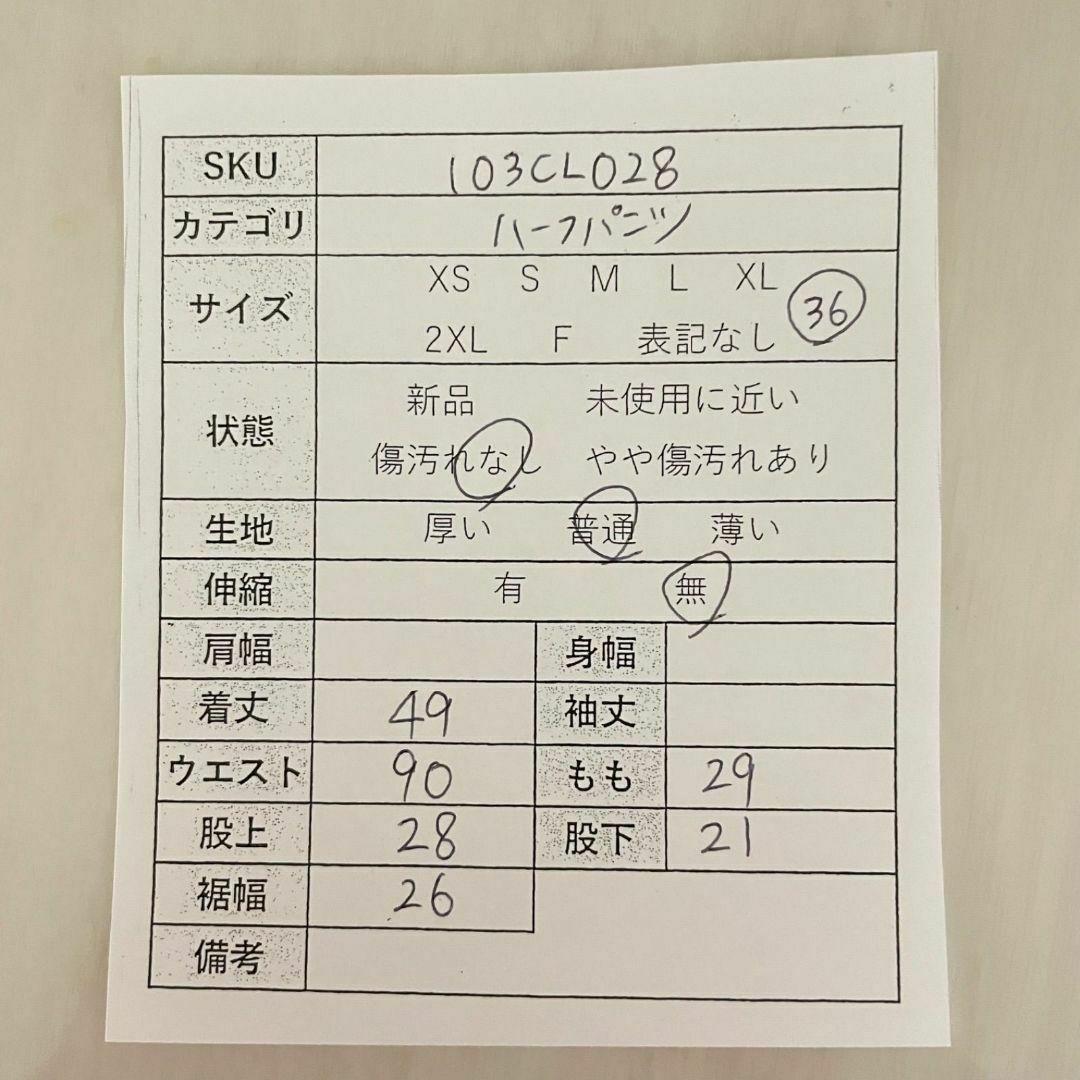 SKU 103CL028
カテゴリ ハーフパンツ
サイズ XS S M L XL
2XL F 表記なし 36
状態 新品 未使用に近い
傷汚れなし やや傷汚れあり
生地 厚い 普通 薄い
伸縮 有 無
肩幅 身幅
着丈 49 袖丈
ウエスト 90 もも 29
股上 28 股下 21
裾幅 26
備考